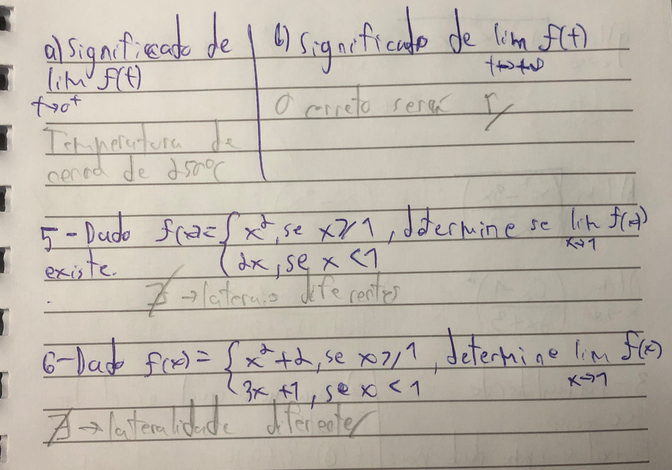 a) Significado de
lim f(t)
t→0⁺
Temperatura de
cerca de 250°C
b) Significado de lim f(t)
t→+∞
O correto será
5-Dado f(x)= { x², se x≥1 , determine se lim f(x)
2x, se x<1 x→1
existe.
∄ → laterais diferentes
6-Dado f(x)= { x²+2, se x≥1 , determine lim f(x)
3x+1, se x<1 x→1
∄ → lateralidade diferente